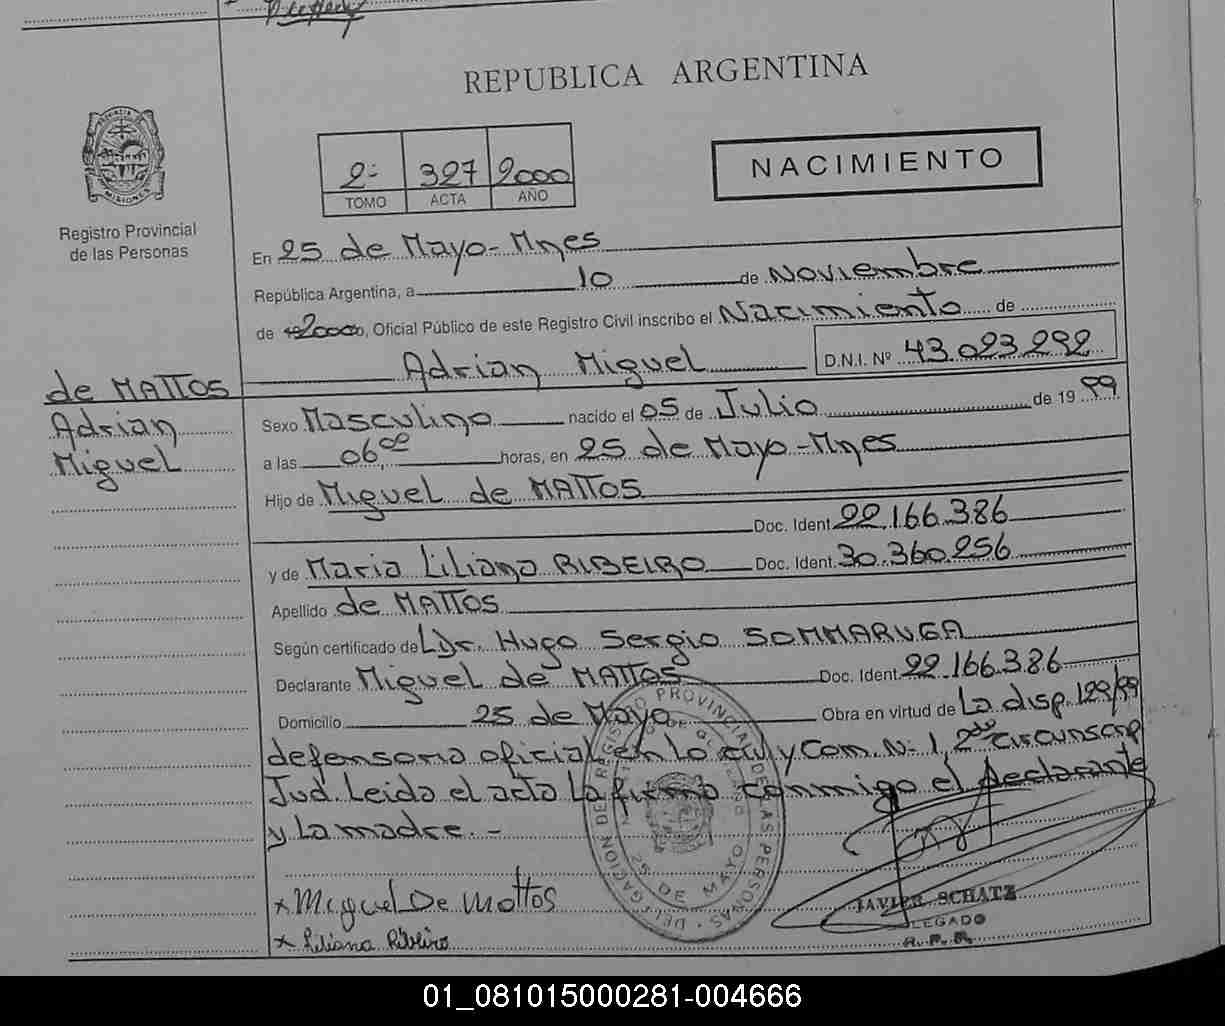 REPUBLICA ARGENTINA
PROVINCIA DE MISIONES
Registro Provincial
de las Personas
2- 327 2000
TOMO ACTA AÑO
NACIMIENTO
En 25 de Mayo - Mnes
República Argentina, a 10 de Noviembre
de 2000, Oficial Público de este Registro Civil inscribo el Nacimiento de
Adrian Miguel D.N.I. Nº 43.023.292
de MATTOS
Adrian
Miguel
Sexo Masculino nacido el 05 de Julio de 19 99
a las 06 00 horas, en 25 de Mayo - Mnes
Hijo de Miguel de MATTOS
Doc. Ident. 22.166.386
y de Maria Liliana RIBEIRO Doc. Ident. 30.360.256
Apellido de MATTOS
Según certificado de Dr. Hugo Sergio SOMMARUGA
Declarante Miguel de MATTOS Doc. Ident. 22.166.386
Domicilio 25 de Mayo Obra en virtud de La disp. 129/99
defensoria oficial en lo civil y Com. Nº 1, 2da Circunscrip
Jud. Leida el acta La firma conmigo el declarante
y La madre. -
DELEGACION DEL REGISTRO PROVINCIAL DE LAS PERSONAS
25 DE MAYO
x Miguel De Mattos
x Liliana Ribeiro
JAVIER SCHATZ
DELEGADO
R. P. P.
01_081015000281-004666